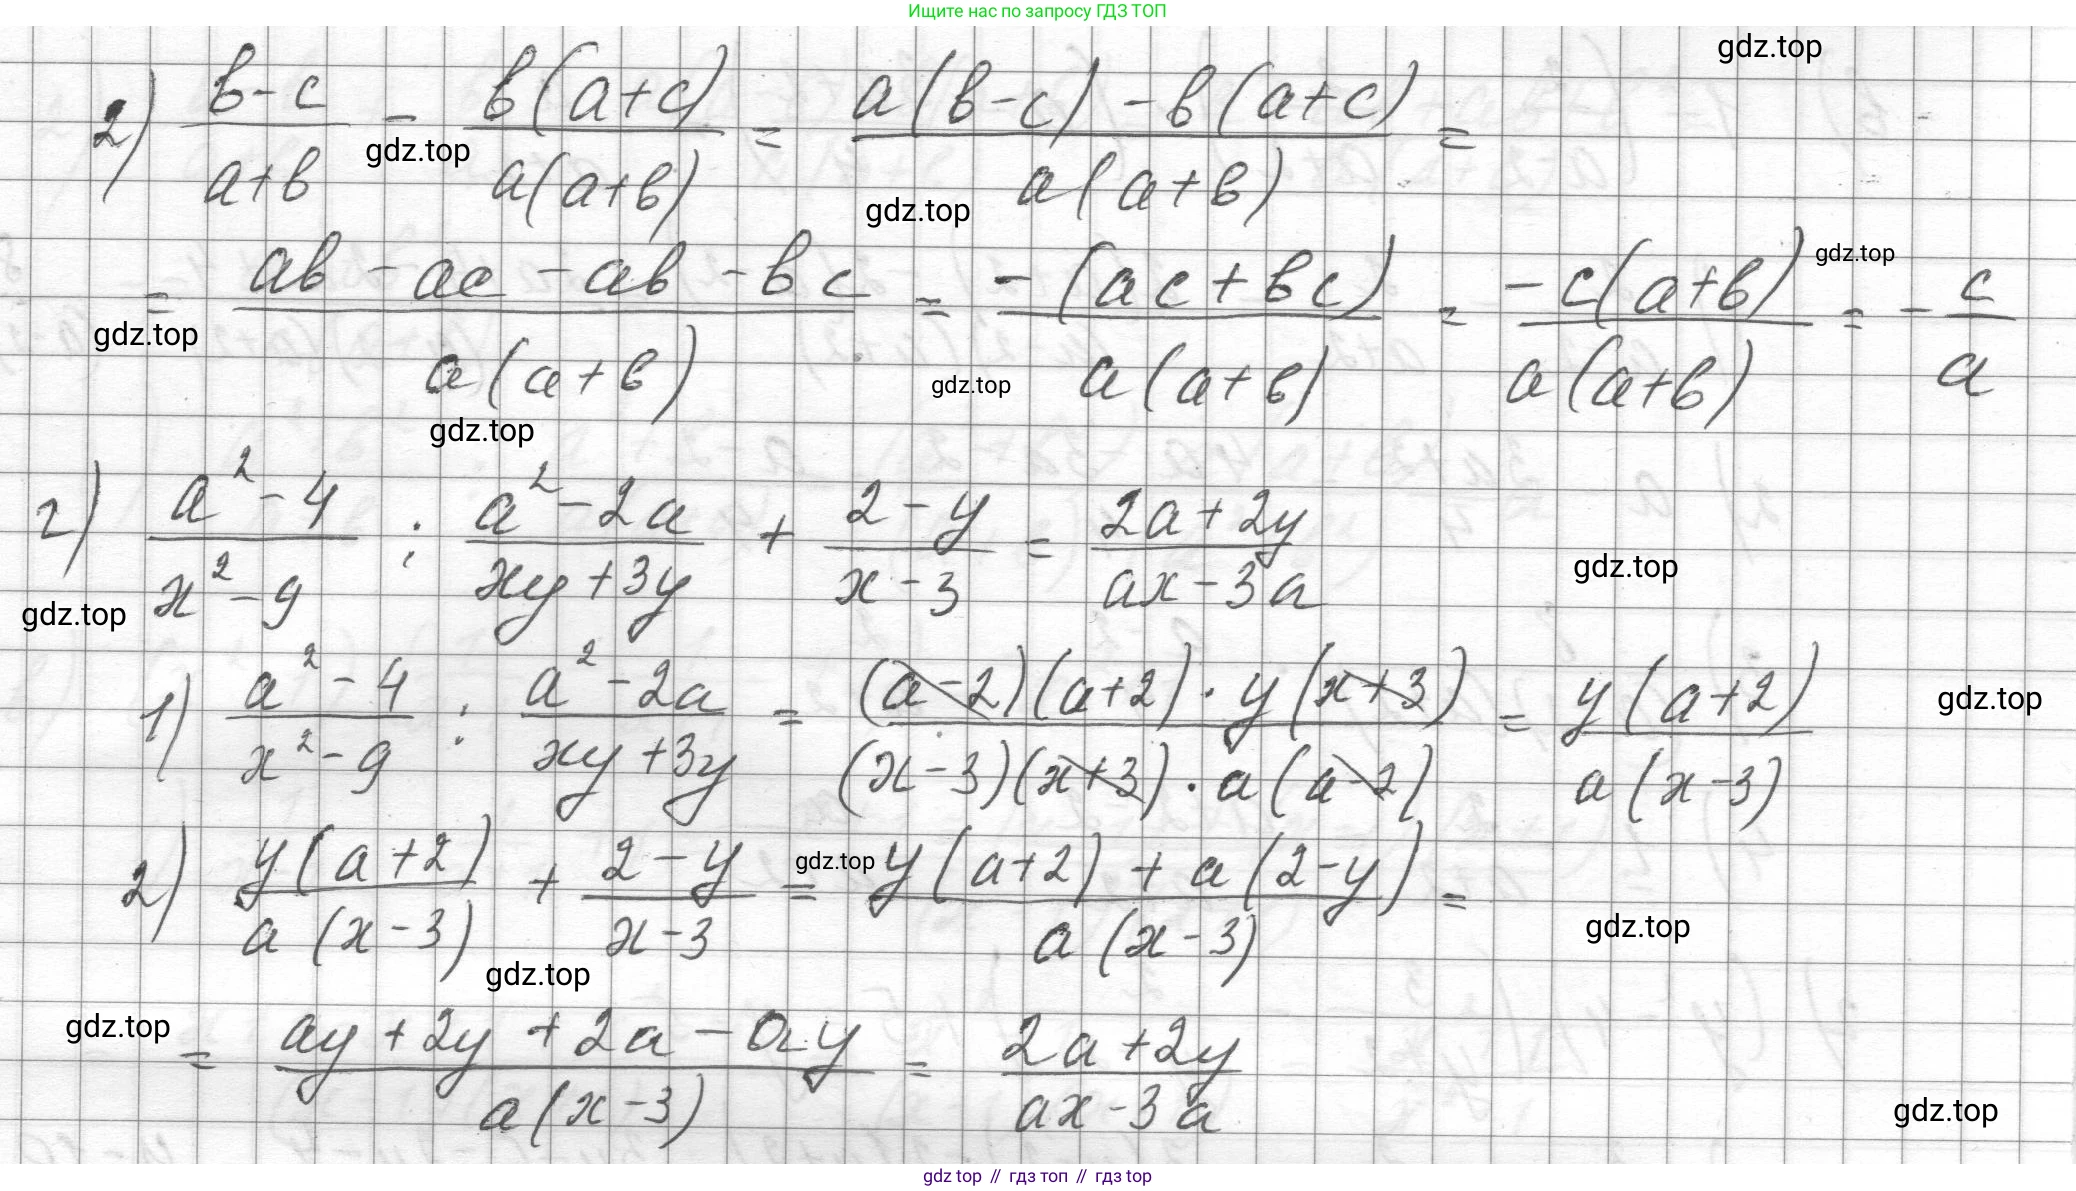 Ищите нас по запросу ГДЗ ТОП
gdz.top
2) (в-c)/(a+в) - (в(a+c))/(a(a+в)) = (a(в-c)-в(a+c))/(a(a+в)) =
gdz.top
gdz.top
= (aв-ac-aв-вc)/(a(a+в)) = (-(ac+вc))/(a(a+в)) = (-c(a+в))/(a(a+в)) = -c/a
gdz.top
gdz.top
gdz.top
gdz.top
г) (a²-4)/(x²-9) : (a²-2a)/(xy+3y) + (2-y)/(x-3) = (2a+2y)/(ax-3a)
gdz.top
gdz.top
1) (a²-4)/(x²-9) : (a²-2a)/(xy+3y) = ((a-2)(a+2)·y(x+3))/((x-3)(x+3)·a(a-2)) = (y(a+2))/(a(x-3))
gdz.top
2) (y(a+2))/(a(x-3)) + (2-y)/(x-3) = (y(a+2)+a(2-y))/(a(x-3)) =
gdz.top
gdz.top
gdz.top
gdz.top
= (ay+2y+2a-ay)/(a(x-3)) = (2a+2y)/(ax-3a)
gdz.top
gdz top // гдз топ // gdz top